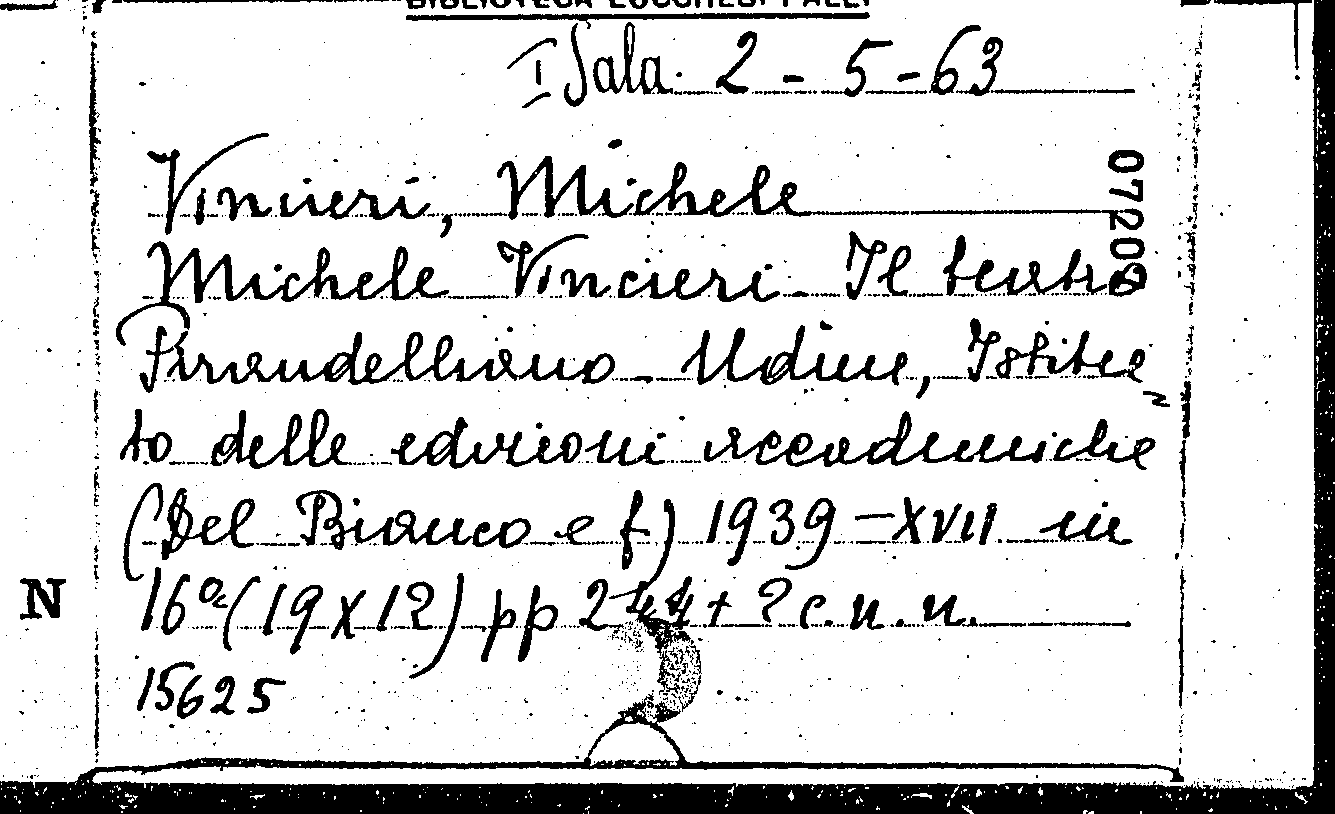 BIBLIOTECA LUCCHESI PALLI
I Sala. 2 - 5 - 63
Vincieri, Michele
Michele Vincieri. Il teatro
Pirandelliano. Udine, Istitu
to delle edizioni accademiche
(Del Bianco e f) 1939 = XVII in
16° (19 X 12) pp 244 + 2 c. n. n.
15625
N